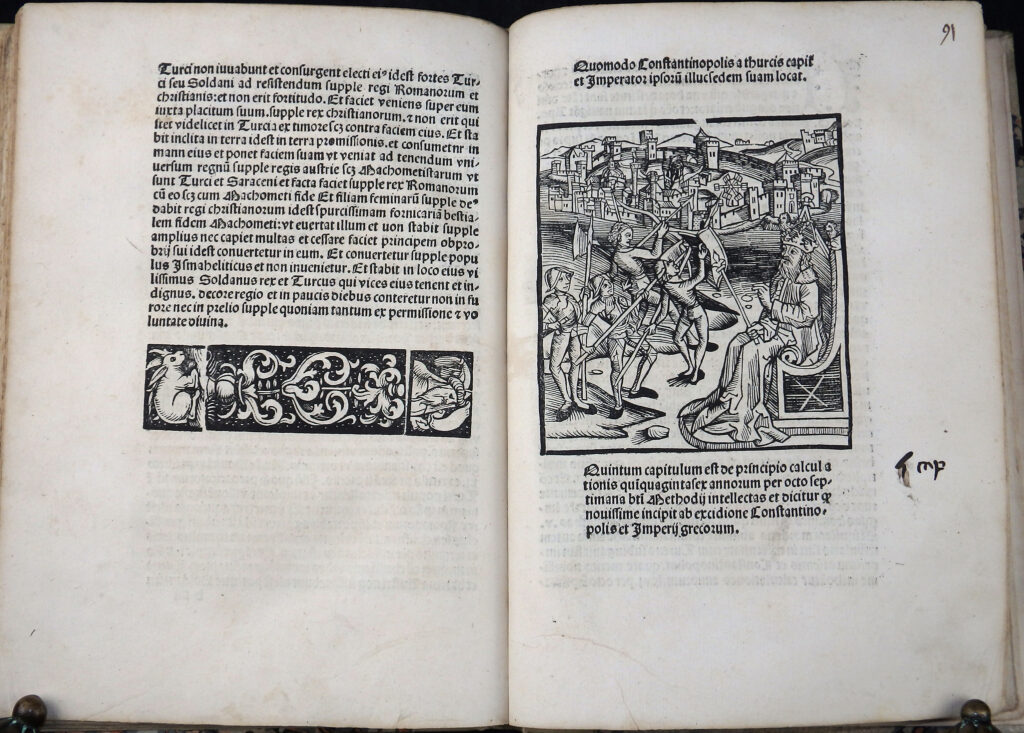 Turci non iuuabunt et consurgent electi eiꝰ idest fortes Tur-
ci seu Soldani ad resistendum supple regi Romanorum et
christianis: et non erit fortitudo. Et faciet veniens super eum
iuxta placitum suum. supple rex christianorum. ⁊ non erit qui
stet videlicet in Turcia ex timore scʒ contra faciem eius. Et sta
bit inclita in terra idest in terra promissionis. et consumetnr in
mann eius et ponet faciem suam vt veniat ad tenendum vni-
uersum regnū supple regis austrie scʒ Machometistarum vt
sunt Turci et Saraceni et facta faciet supple rex Romanorum
cū eo scʒ cum Machometi fide Et filiam feminarū supple de⸗
dabit regi christianorum idest spurcissimam fornicariā bestia-
lem fidem Machometi: vt euertat illum et uon stabit supple
amplius nec capiet multas et cessare faciet principem obpro-
brij sui idest conuertetur in eum. Et conuertetur supple popu
lus Ismaheliticus et non inuenietur. Et stabit in loco eius vi
lissimus Soldanus rex et Turcus qui vices eius tenent et in-
dignus. decore regio et in paucis diebus conteretur non in fu
rore nec in prelio supple quoniam tantum ex permissione ⁊ vo
luntate diuina.
91
Quomodo Constantinopolis a thurcis capit̄
et Imperator ipsorū illuc sedem suam locat.
Quintum capitulum est de principio calcul a
tionis quīquagintasex annorum per octo sep-
timana bt̄i Methodij intellectas et dicitur ꝙ
nouissime incipit ab excidione Constantino-
polis et Imperij grecorum.